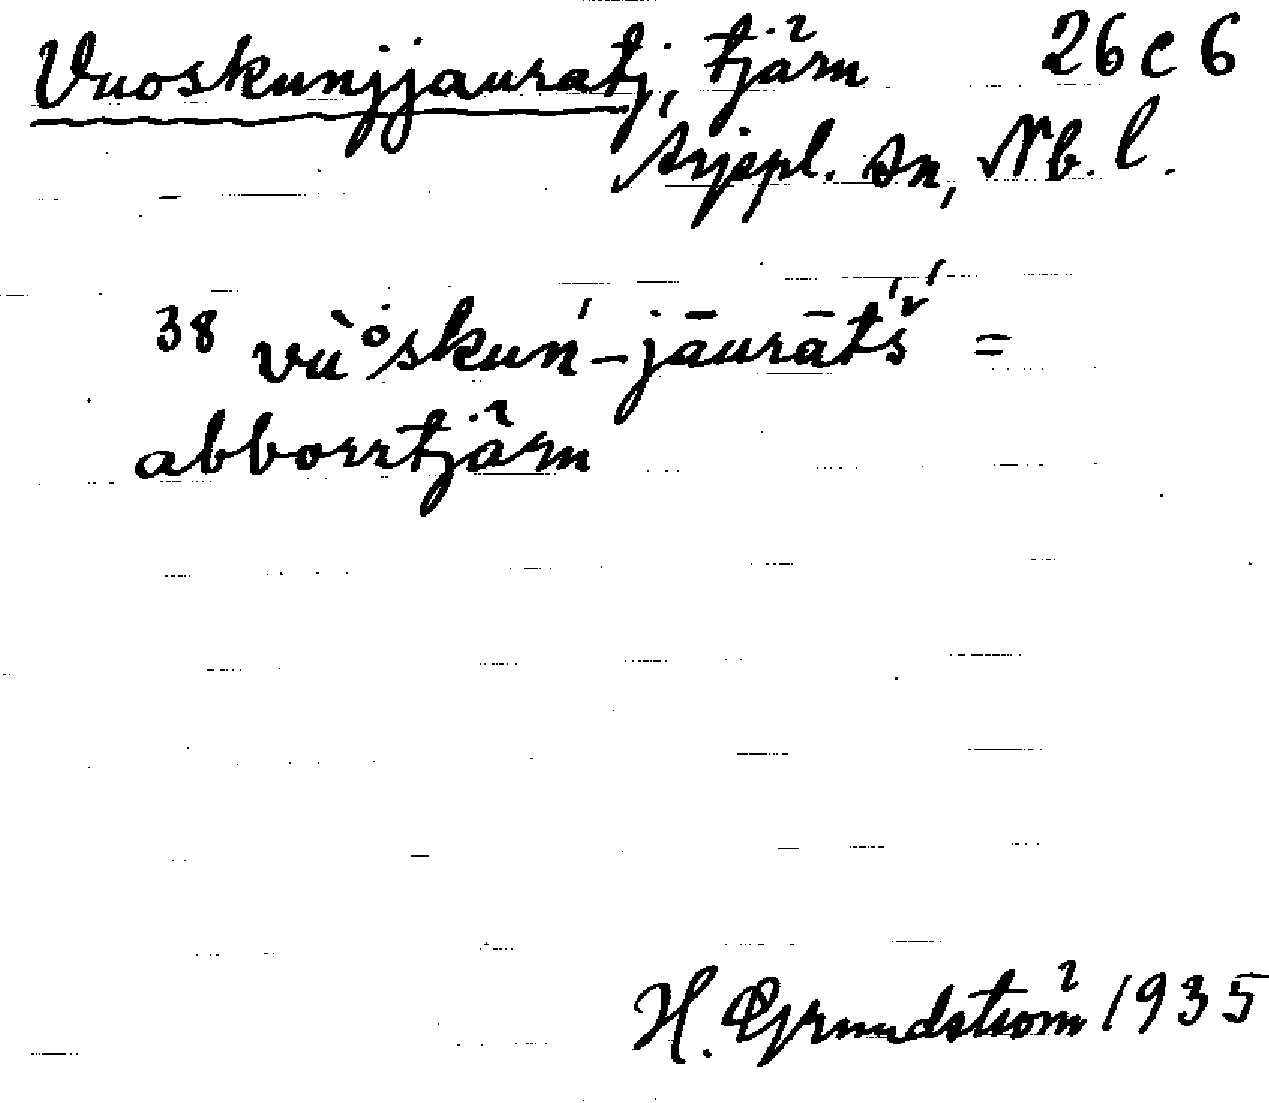 Vuoskunjjauratj, tjärn 26 c 6
Arjepl. sn, Nb. l.
38 vù̊skuń-jāurātʹšʹ =
abborrtjärn
H. Grundström 1935